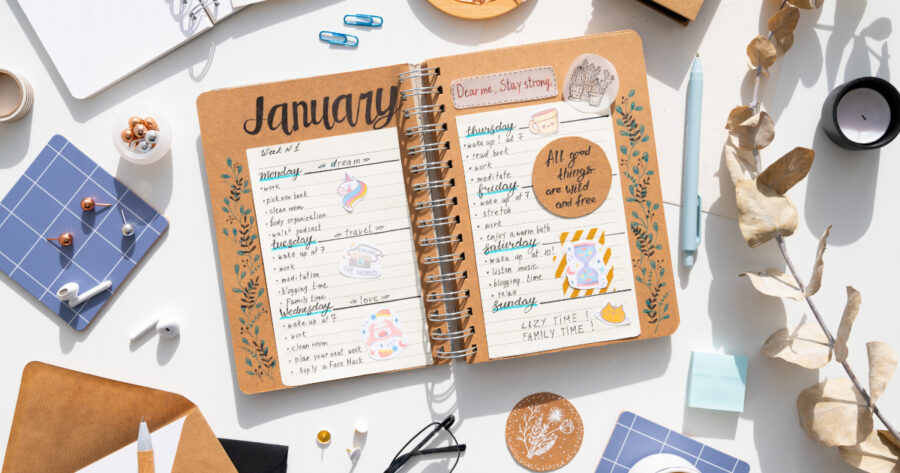 January
Week N 1
Monday «dream»
• work
• pick new book
• clean room
• body organization
• podcast
tuesday «travel»
• wake up at 7
• work
THE WORLD
• meditation
• blogging time
• Family time
Wednesday «love»
• wake up at 7
• work
• clean room
• plan your next week
• Apply a Face Mask
Dear me, Stay strong.
thursday
• wake up! at 7
• read book
• work
• meditate
friday
• wake up at 7
• stretch
• work
• enjoy a warm bath
All good
things
are wild
and free
Saturday
• wake up at 10!
• listen music
• blogging time
• relax
Sunday
LAZY TIME!
FAMILY TIME!